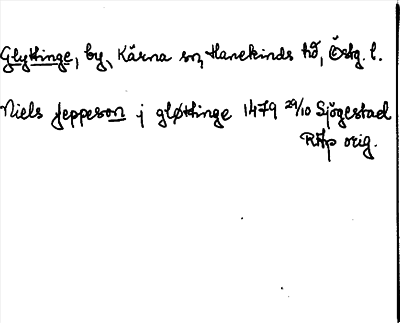 Glyttinge, by, Kärna sn, Hanekinds hd, Östg. l.
Niels Jeppeson j gløttinge 1479 29/10 Sjögestad
RAp orig.